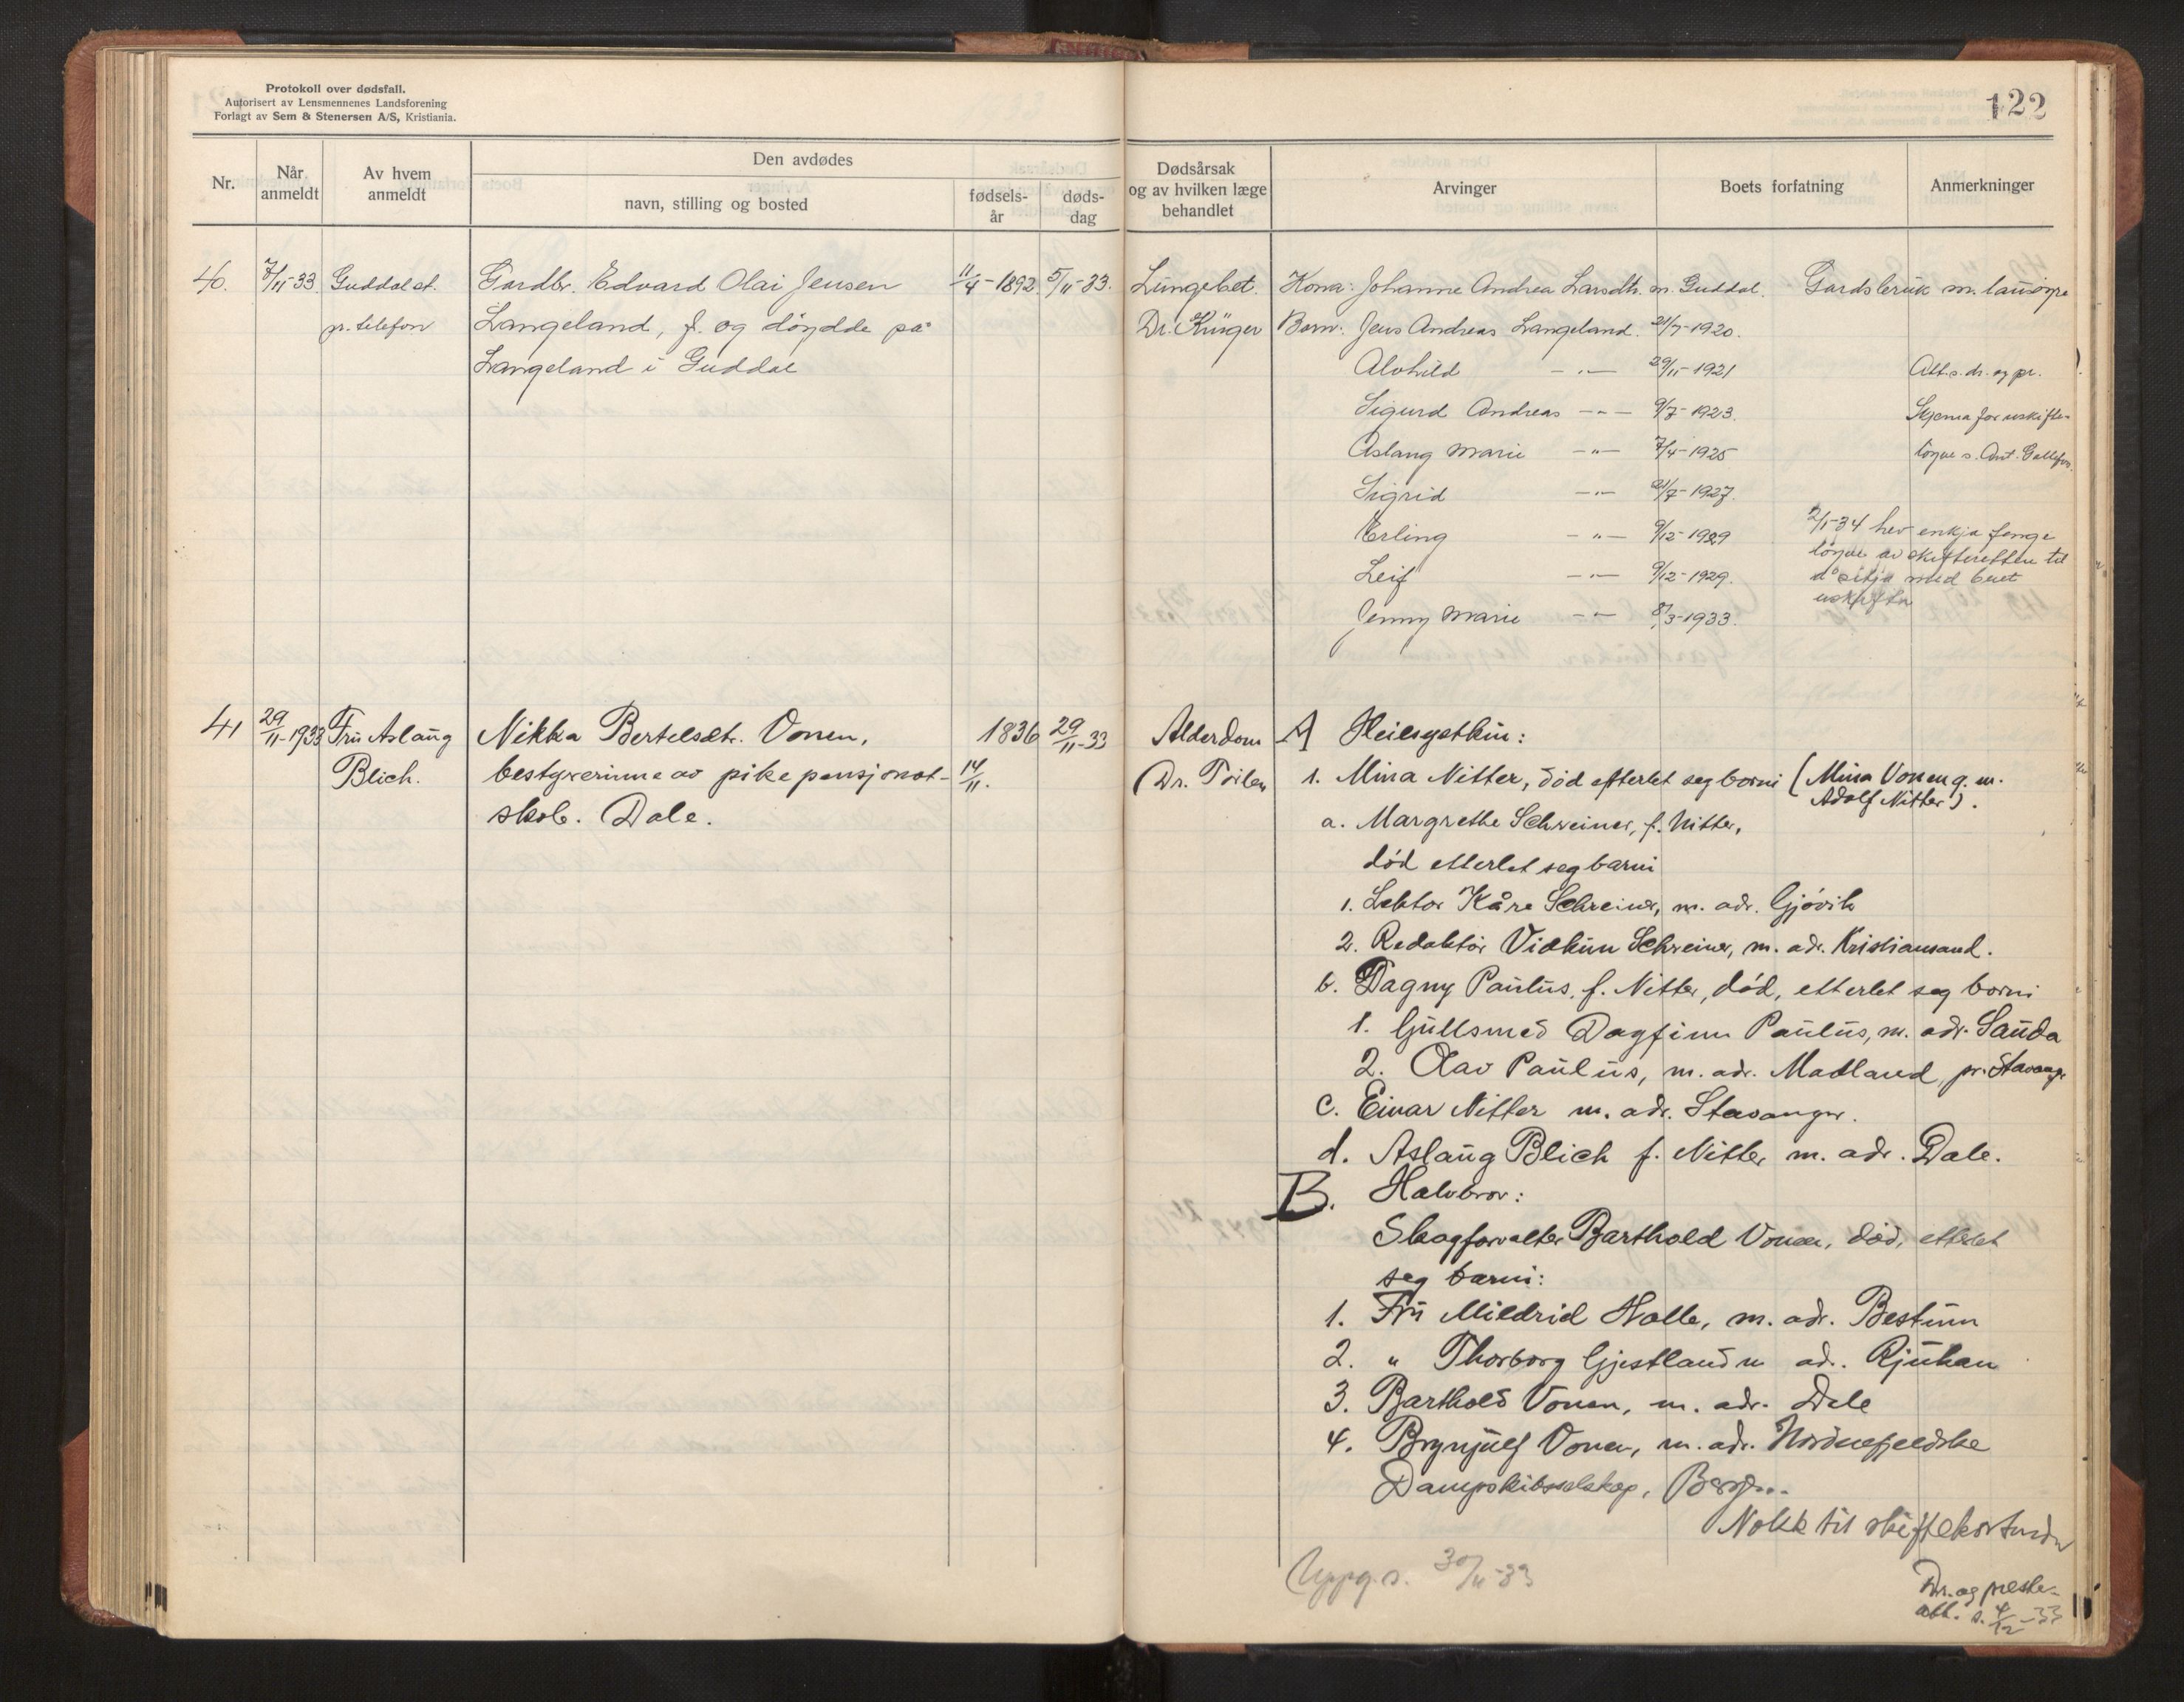 Protokoll over dødsfall.
Autorisert av Lensmennenes Landsforening
Forlagt av Sem & Stenersen A/S, Kristiania.
122
Nr.
Når anmeldt
Av hvem anmeldt
Den avdødes
navn, stilling og bosted
fødsels-år
døds-dag
Dødsårsak og av hvilken læge behandlet
Arvinger
Boets forfatning
Anmerkninger
40. 7/11-33 Guddal st. Gardbr. Edvard Olai Jensen 11/4-1892 5/11-33. Lungebet. Kona: Johanne Andrea Larsdtr. m. Guddal. Gardsbruk m. lausøyre
pr. telefon Langeland, f. og døydde på Dr. Krüger Born: Jens Andreas Langeland. 21/7-1920.
Langeland i Guddal Alvhild -"- 29/11-1921 Att. s. dr. og pr.
Sigurd Andreas -"- 9/7-1923. Skjema for uskifte-
Aslaug Marie -"- 7/4-1925 løyve s. Ant.
Sigrid -"- 21/7-1927.
Erling -"- 9/12-1929 2/1-34 hev enkja fenge
løyve av skifteretten til
Leif -"- 9/12-1929. å sitja med buet
uskifta
Jenny Marie -"- 8/3-1933.
41 29/11-1933 Fru Aslaug Nikka Bertelsdtr. Vonen, 1836 29/11-33 Alderdom A Heilsystkin:
Blich. bestyrerinne av pikepensjonat- 14/11. (Dr. 1. Mina Nitter, død efterlet seg borni (Mina Vonen g. m.
Adolf Nitter).
skole. Dale. a. Margrethe Schreiner, f. Nitter,
død etterlet seg barni
1. Lektor Kåre Schreiner, m. adr. Gjøvik
2. Redaktør Vidkun Schreiner, m. adr. Kristiansand.
b. Dagny Paulus, f. Nitter, død, etterlet seg borni
1. Gullsmed Dagfinn Paulus, m. adr. Sauda
2. Olav Paulus, m. adr. Madland, pr. Stavanger
c. Einar Nitter m. adr. Stavanger.
d. Aslaug Blich f. Nitter m. adr. Dale.
B. Halvbror:
Skogforvalter Barthold Vonen, død, etterlet
seg barni:
1. Fru Mildrid Holle, m. adr. Bestum
2. " Thorborg Gjestland m adr. Rjukan
3. Barthold Vonen, m. adr. Dale
4. Brynjulf Vonen, m. adr. Nordenfjeldske
Dampskibsselskap, Bergen.
Nokk til skiftekostnader
Uppg. s. 30/11-33
Dr. og preste-
att. s. 4/12-33